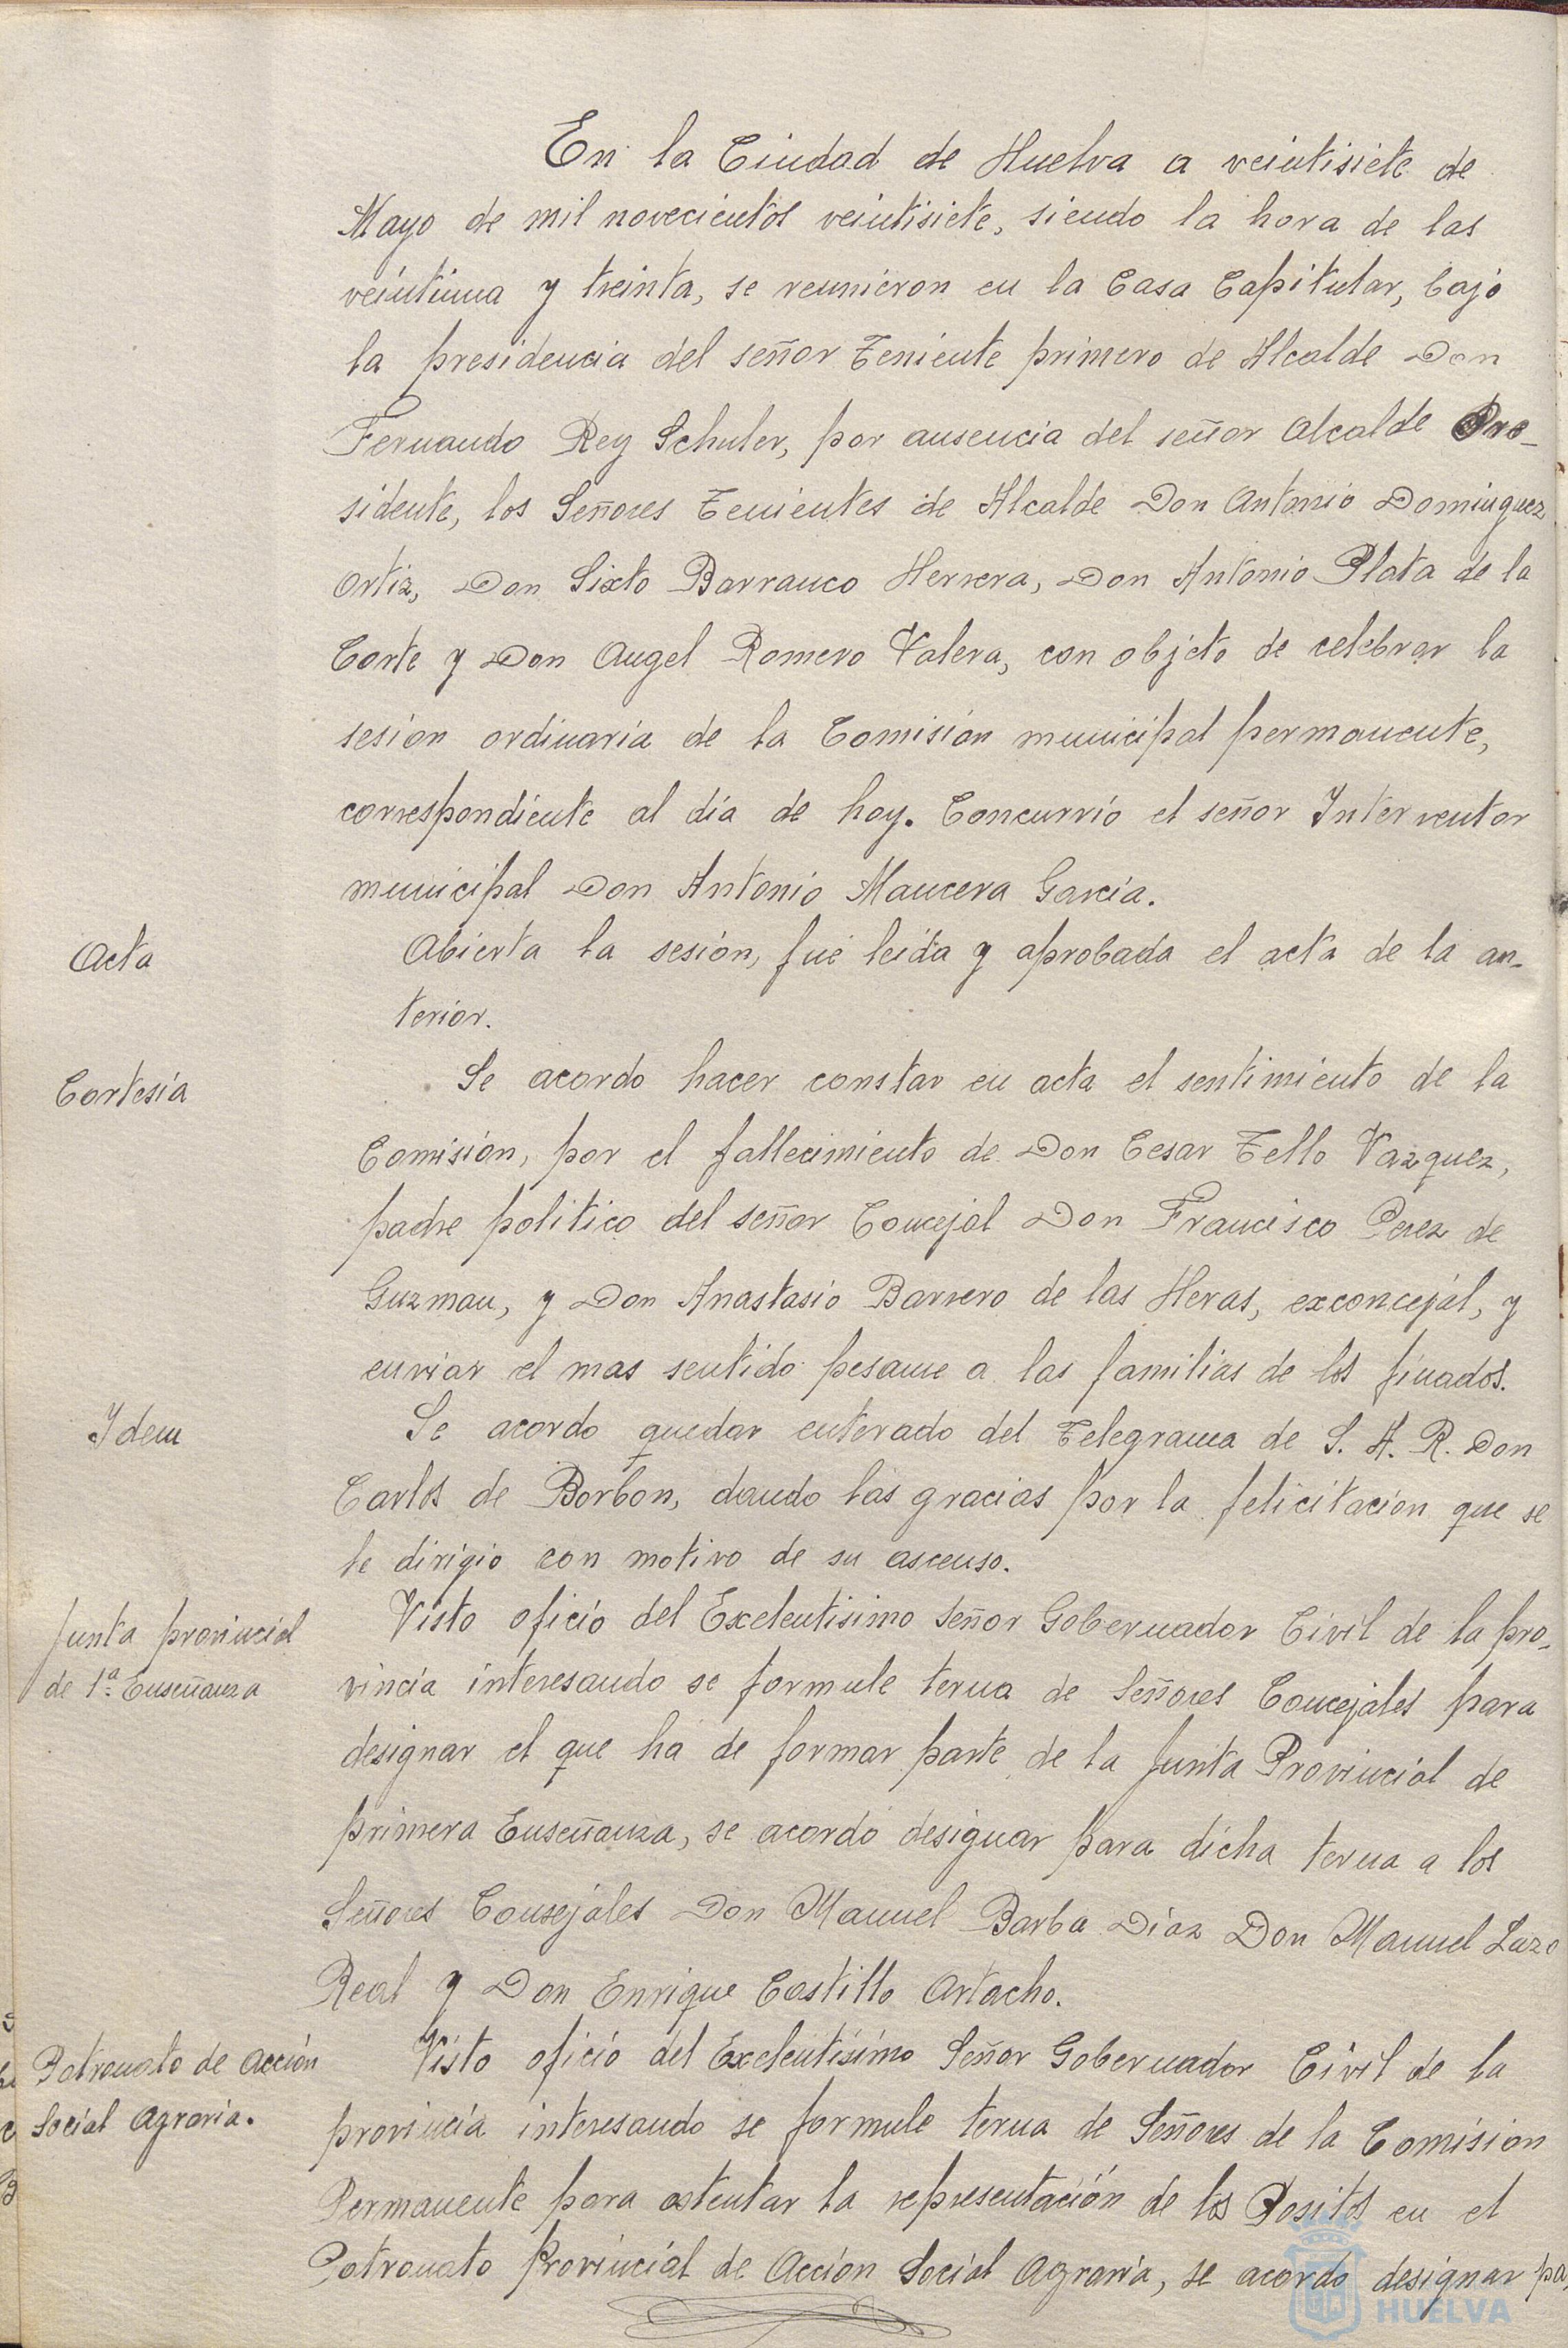 En la Ciudad de Huelva a veintisiete de
Mayo de mil novecientos veintisiete, siendo la hora de las
veintiuna y treinta, se reunieron en la Casa Capitular, bajo
la presidencia del señor Teniente primero de Alcalde Don
Fernando Rey Schuler, por ausencia del señor Alcalde Pre-
sidente, los Señores Tenientes de Alcalde Don Antonio Dominguez
Ortiz, Don Sixto Barranco Herrera, Don Antonio Plata de la
Corte y Don Angel Romero Valera, con objeto de celebrar la
sesion ordinaria de la Comisión municipal permanente,
correspondiente al día de hoy. Concurrió el señor Interventor
municipal Don Antonio Mancera García.
Acta
Abierta la sesión, fué leida y aprobada el acta de la an-
terior.
Cortesía
Se acordo hacer constar en acta el sentimiento de la
Comisión, por el fallecimiento de Don Cesar Tello Vazquez,
padre politico del señor Concejal Don Francisco Perez de
Guzman, y Don Anastasio Barrero de las Heras, exconcejal, y
enviar el mas sentido pesame a las familias de los finados.
Ydem
Se acordo quedar enterado del Telegrama de S. A. R. Don
Carlos de Borbon, dando las gracias por la felicitacion que se
le dirigio con motivo de su ascenso.
Junta provincial
de 1ª Enseñanza
Visto oficio del Exelentisimo Señor Gobernador Civil de la pro-
vincia interesando se formule terna de Señores Concejales para
designar el que ha de formar parte de la Junta Provincial de
primera Enseñanza, se acordó designar para dicha terna a los
Señores Consejales Don Manuel Barba Díaz Don Manuel Lazo
Real y Don Enrique Castillo Artacho.
Patronato de Acción
Social Agraria.
Visto oficio del Exelentísimo Señor Gobernador Civil de la
provincia interesando se formule terna de Señores de la Comisión
Permanente para ostentar la representación de los Positos en el
Patronato Provincial de Acción Social Agraria, se acordo designar pa
HUELVA